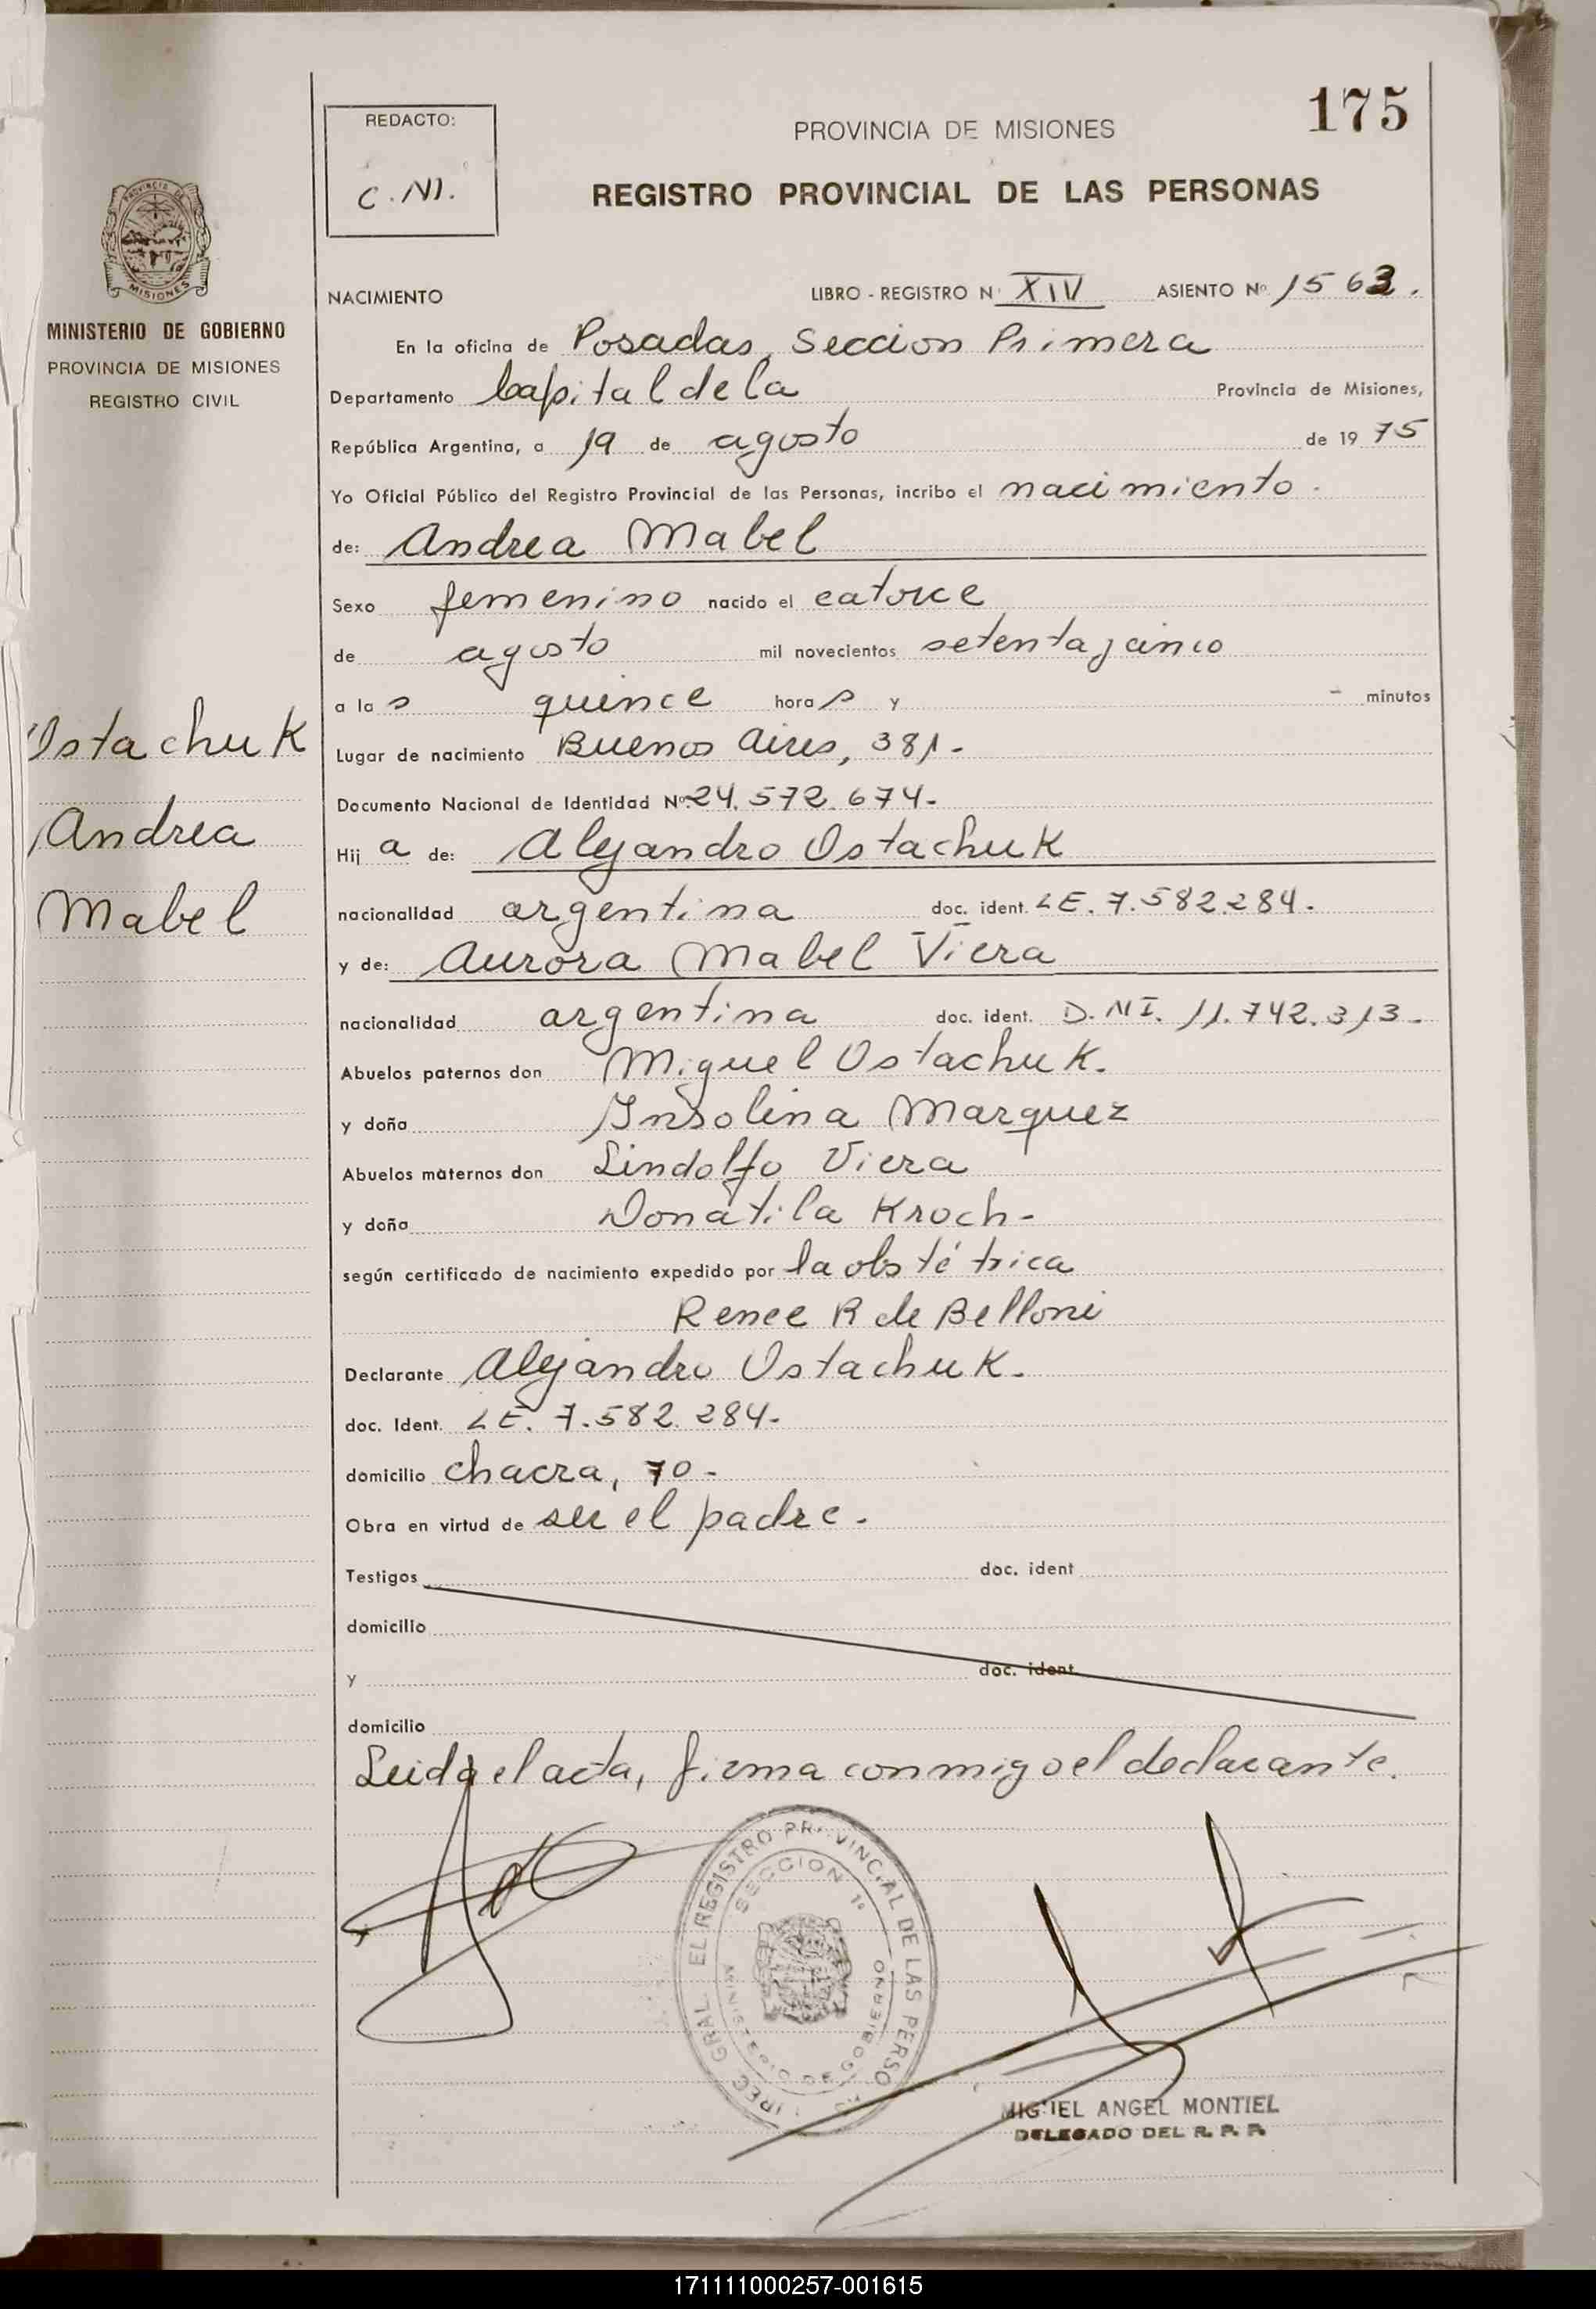 175
REDACTO:
C.NI.
PROVINCIA DE MISIONES
REGISTRO PROVINCIAL DE LAS PERSONAS
PROVINCIA DE
MISIONES
MINISTERIO DE GOBIERNO
PROVINCIA DE MISIONES
REGISTRO CIVIL
NACIMIENTO LIBRO - REGISTRO Nº XIV ASIENTO Nº 1563.
En la oficina de Posadas, Seccion Primera
Departamento Capital de la Provincia de Misiones,
República Argentina, a 19 de agosto de 1975
Yo Oficial Público del Registro Provincial de las Personas, incribo el nacimiento.
de: Andrea Mabel
Sexo femenino nacido el catorce
de agosto mil novecientos setenta y cinco
a las quince horas y - minutos
Ostachuk
Lugar de nacimiento Buenos Aires, 381-
Documento Nacional de Identidad Nº 24.572.674-
Andrea
Hija de: Alejandro Ostachuk
Mabel
nacionalidad argentina doc. ident. LE. 7.582.284.
y de: Aurora Mabel Viera
nacionalidad argentina doc. ident. D.NI. 11.742.313-
Abuelos paternos don Miguel Ostachuk.
y doña Insolina Marquez
Abuelos maternos don Lindolfo Viera
y doña Donatila Kroch-
según certificado de nacimiento expedido por la obstétrica
Renee R de Belloni
Declarante Alejandro Ostachuk.
doc. Ident. LE. 7.582.284-
domicilio chacra, 70-
Obra en virtud de ser el padre.
Testigos doc. ident
domicilio
y doc. ident
domicilio
Leida el acta, firma conmigo el declarante.
DIREC. GRAL. EL REGISTRO PROVINCIAL DE LAS PERSONAS
SECCION 1ª
MINISTERIO DE GOBIERNO
MIGUEL ANGEL MONTIEL
DELEGADO DEL R. P. P.
171111000257-001615